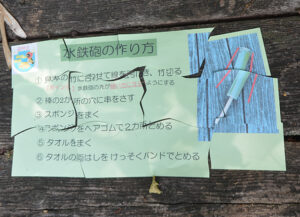 水鉄砲の作り方
① 竹に合わせて線を引き、竹切る
水鉄砲の穴が ようにする
② 棒の2か所の穴に串をさす
③ スポンジをまく
④ スポンジをヘアゴムで2か所とめる
⑤ タオルをまく
⑥ タオルの両はしをけっそくバンドでとめる